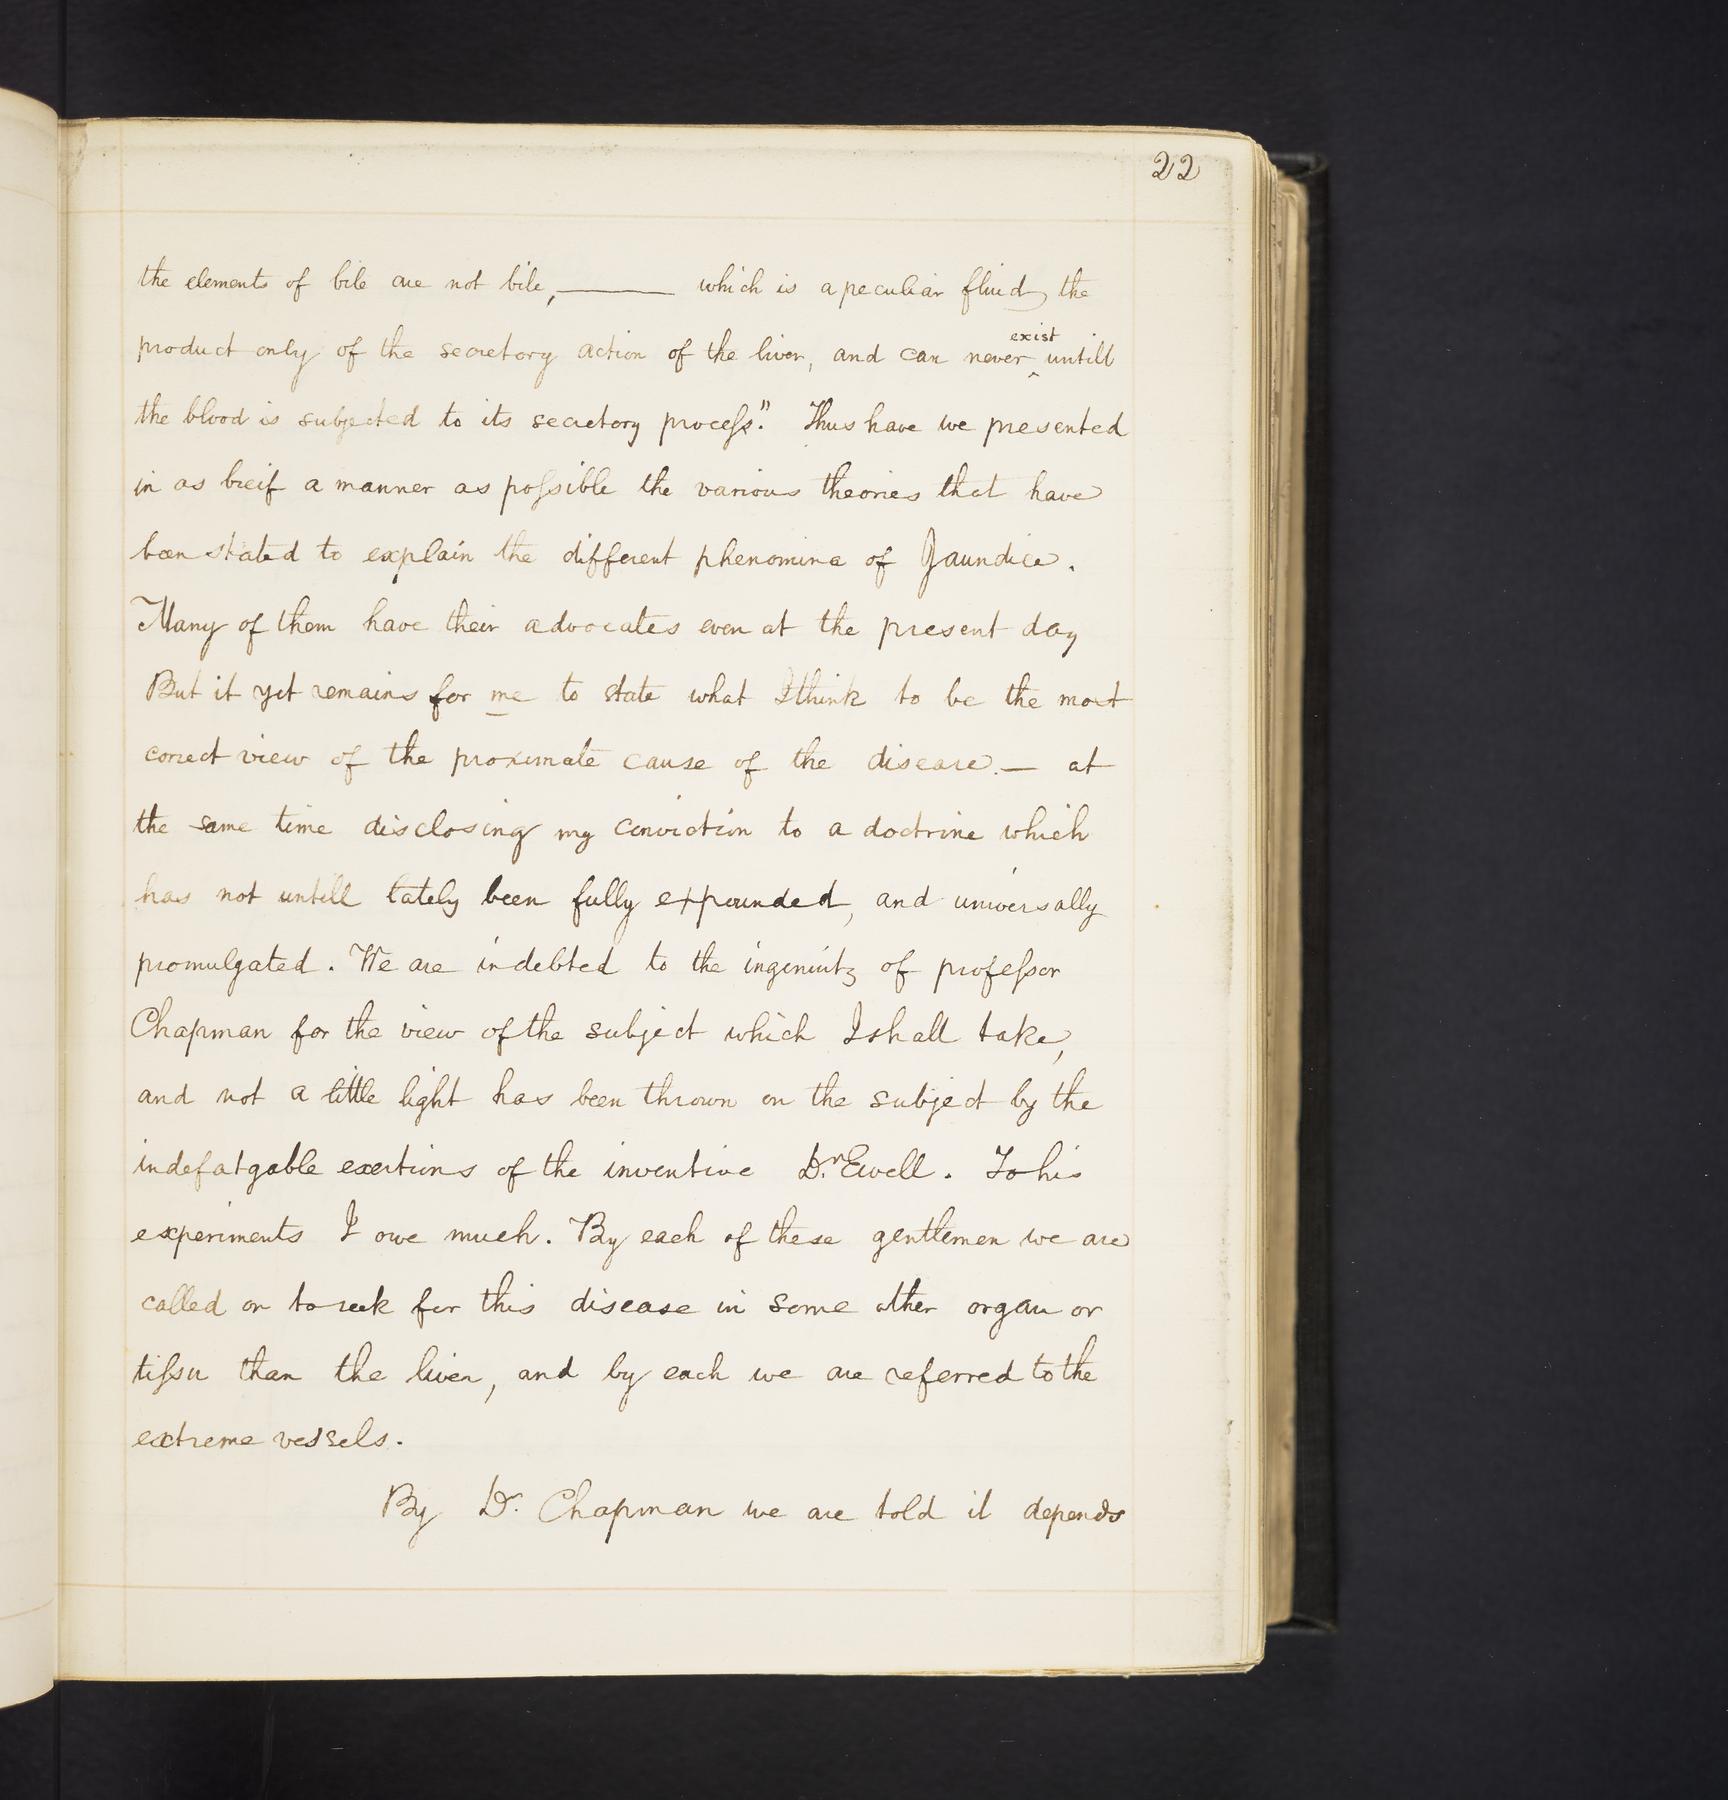 22
the elements of bile are not bile, ——— which is a peculiar fluid, the
exist
product only of the secretory action of the liver, and can never ‸ untill
the blood is subjected to its secretory proceſs." Thus have we presented
in as breif a manner as poſsible the various theories that have
been stated to explain the different phenomina of Jaundice.
Many of them have their advocates even at the present day
But it yet remains for me to state what I think to be the most
correct view of the proximate cause of the disease. — at
the same time disclosing my conviction to a doctrine which
has not untill lately been fully expounded, and universally
promulgated. We are indebted to the ingenuity of profeſsor
Chapman for the view of the subject which I shall take,
and not a little light has been thrown on the subject by the
indefatgable exertions of the inventive Dr. Ewell. To his
experiments I owe much. By each of these gentlemen we are
called on to seek for this disease in some other organ or
tiſsu than the liver, and by each we are referred to the
extreme vessels.
By Dr. Chapman we are told it depends